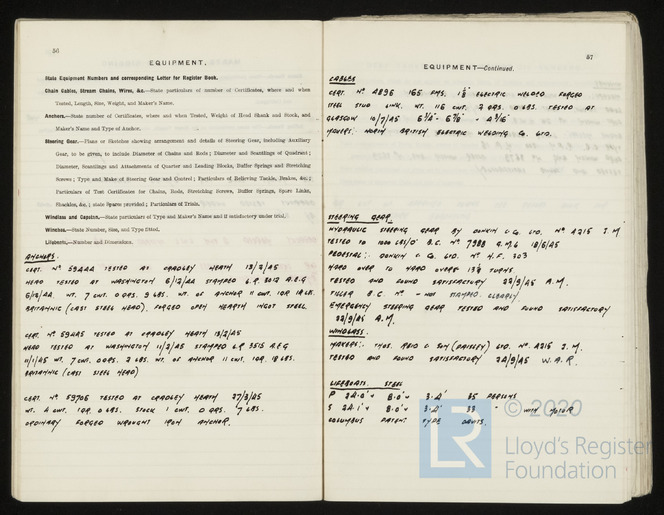 56
EQUIPMENT.
State Equipment Numbers and corresponding Letter for Register Book.
Chain Cables, Stream Chains, Wires, &c.—State particulars of number of Certificates, where and when
Tested, Length, Size, Weight, and Maker's Name.
Anchors.—State number of Certificates, where and when Tested, Weight of Head Shank and Stock, and
Maker's Name and Type of Anchor.
Steering Gear.—Plans or Sketches showing arrangement and details of Steering Gear, including Auxiliary
Gear, to be given, to include Diameter of Chains and Rods; Diameter and Scantlings of Quadrant;
Diameter, Scantlings and Attachments of Quarter and Leading Blocks, Buffer Springs and Stretching
Screws; Type and Make of Steering Gear and Control; Particulars of Relieving Tackle, Brakes, &c.;
Particulars of Test Certificates for Chains, Rods, Stretching Screws, Buffer Springs, Spare Links,
Shackles, &c.; state Spares provided; Particulars of Trials.
Windlass and Capstan.—State particulars of Type and Maker's Name and if satisfactory under trial.
Winches.—State Number, Size, and Type fitted.
Lifeboats.—Number and Dimensions.
ANCHORS.
CERT. Nº 59AAA TESTED AT CRADLEY HEATH 13/2/45
HEAD TESTED AT WASHINGTON 6/12/44 STAMPED L.R. 3012 A.E.G
6/12/44 WT. 7 CWT. 0 QRS. 9 LBS. WT. OF ANCHOR 11 CWT. 1QR 18 LB.
BRITANNIC (CAST STEEL HEAD). FORGED OPEN HEARTH INGOT STEEL.
CERT. Nº 59AA5 TESTED AT CRADLEY HEATH 13/2/45
HEAD TESTED AT WASHINGTON 11/2/45 STAMPED L.R 3515 A.E.G
11/1/45 WT. 7 CWT. 0 QRS. 2 LBS. WT. OF ANCHOR 11 CWT. 1QR. 18 LBS.
BRITANNIC (CAST STEEL HEAD)
CERT. Nº 59706 TESTED AT CRADLEY HEATH 27/3/45
WT. 4 CWT. 1QR. 0 LBS. STOCK 1 CWT. 0 QRS. 7 LBS.
ORDINARY FORGED WROUGHT IRON ANCHOR.
57
EQUIPMENT—Continued.
CABLES
CERT. Nº 4896 165 FMS. 1⅛ ELECTRIC WELDED FORGED
STEEL STUD LINK. WT. 116 CWT. 2 QRS. 0 LBS. TESTED AT
GLASGOW 10/7/45
MAKERS: NORTH BRITISH ELECTRIC WELDING Co. LTD.
STEERING GEAR.
HYDRAULIC STEERING GEAR BY DONKIN & Co. LTD. Nº A215 J.M
TESTED TO 1000 LBS/□" B.C. Nº 7988 A.M.G 18/6/45
PEDESTAL: DONKIN & Co. LTD. Nº H.F. 303
HARD OVER TO HARD OVER TURNS.
TESTED AND FOUND SATISFACTORY 22/9/45 A.M.
TILLER B.C. Nº - NOT STAMPED CLEARLY
EMERGENCY STEERING GEAR TESTED AND FOUND SATISFACTORY
22/9/45 A.M.
WINDLASS.
MAKERS: THOS. REID & SON (PAISLEY) LTD. Nº A216 J.M.
TESTED AND FOUND SATISFACTORY 24/9/45 W.A.R.
LIFEBOATS. STEEL
P 24.0' x 8.0' x 3.2' 35 PERSONS
S 24.1' x 8.0' x 3.2' 33 " WITH MOTOR
COLUMBUS PATENT TYPE DAVITS.
LR
© 2020
Lloyd's Register
Foundation